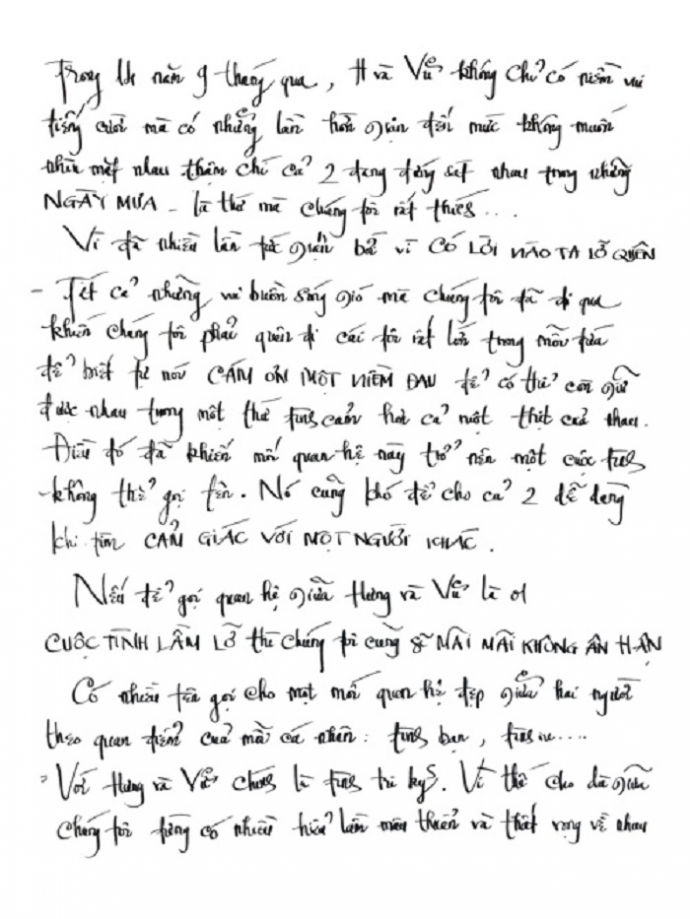 Trong 14 năm 9 tháng qua, H và Vũ không chỉ có niềm vui
tiếng cười mà có những lần hờn giận đến mức không muốn
nhìn mặt nhau thậm chí cả 2 đang đứng sát nhau trong những
NGÀY MƯA - là thứ mà chúng tôi rất thích...
Vì đã nhiều lần tức giận bởi vì CÓ LỜI NÀO TA LỠ QUÊN
- Tất cả những vui buồn sóng gió mà chúng tôi đã đi qua
khiến chúng tôi phải quên đi cái tôi rất lớn trong mỗi đứa
để biết tự nói CÁM ƠN MỘT NIỀM ĐAU để có thể còn giữ
được nhau trong một thứ tình cảm hơn cả ruột thịt của nhau.
Điều đó đã khiến mối quan hệ này trở nên một cuộc tình
không thể gọi tên. Nó cũng khó để cho cả 2 dễ dàng
khi tìm CẢM GIÁC VỚI MỘT NGƯỜI KHÁC.
Nếu để gọi quan hệ giữa Hưng và Vũ là
CUỘC TÌNH LẦM LỠ thì chúng tôi cũng sẽ MÃI MÃI KHÔNG ÂN HẬN
Có nhiều tên gọi cho một mối quan hệ đẹp giữa hai người
theo quan điểm của mỗi cá nhân: tình bạn, tình iu....
Với Hưng và Vũ chính là tình tri kỷ. Vì thế cho dù giữa
chúng tôi từng có nhiều hiểu lầm mâu thuẫn và thất vọng về nhau